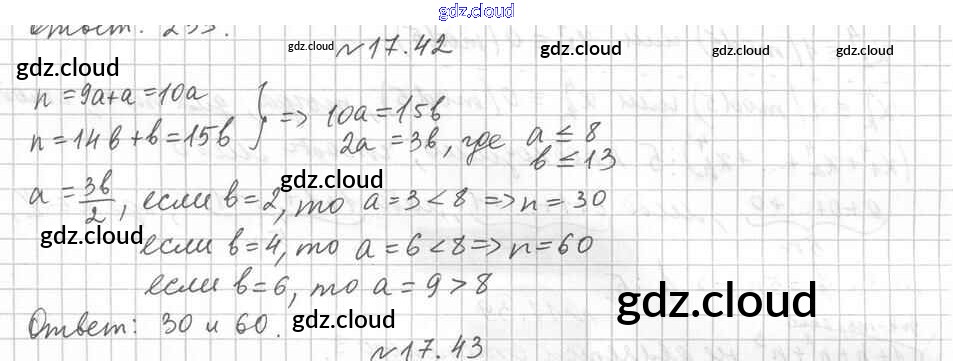 gdz.cloud
Ответ: 255.
gdz.cloud №17.42 gdz.cloud gdz.cloud
gdz.cloud
n = 9a+a = 10a
n = 14b+b = 15b } => 10a = 15b
2a = 3b, где a ≤ 8
b ≤ 13
gdz.cloud
a = 3b/2, если b = 2, то a = 3 < 8 => n = 30
gdz.cloud
если b = 4, то a = 6 < 8 => n = 60
если b = 6, то a = 9 > 8
gdz.cloud
Ответ: 30 и 60.
gdz.cloud
№17.43